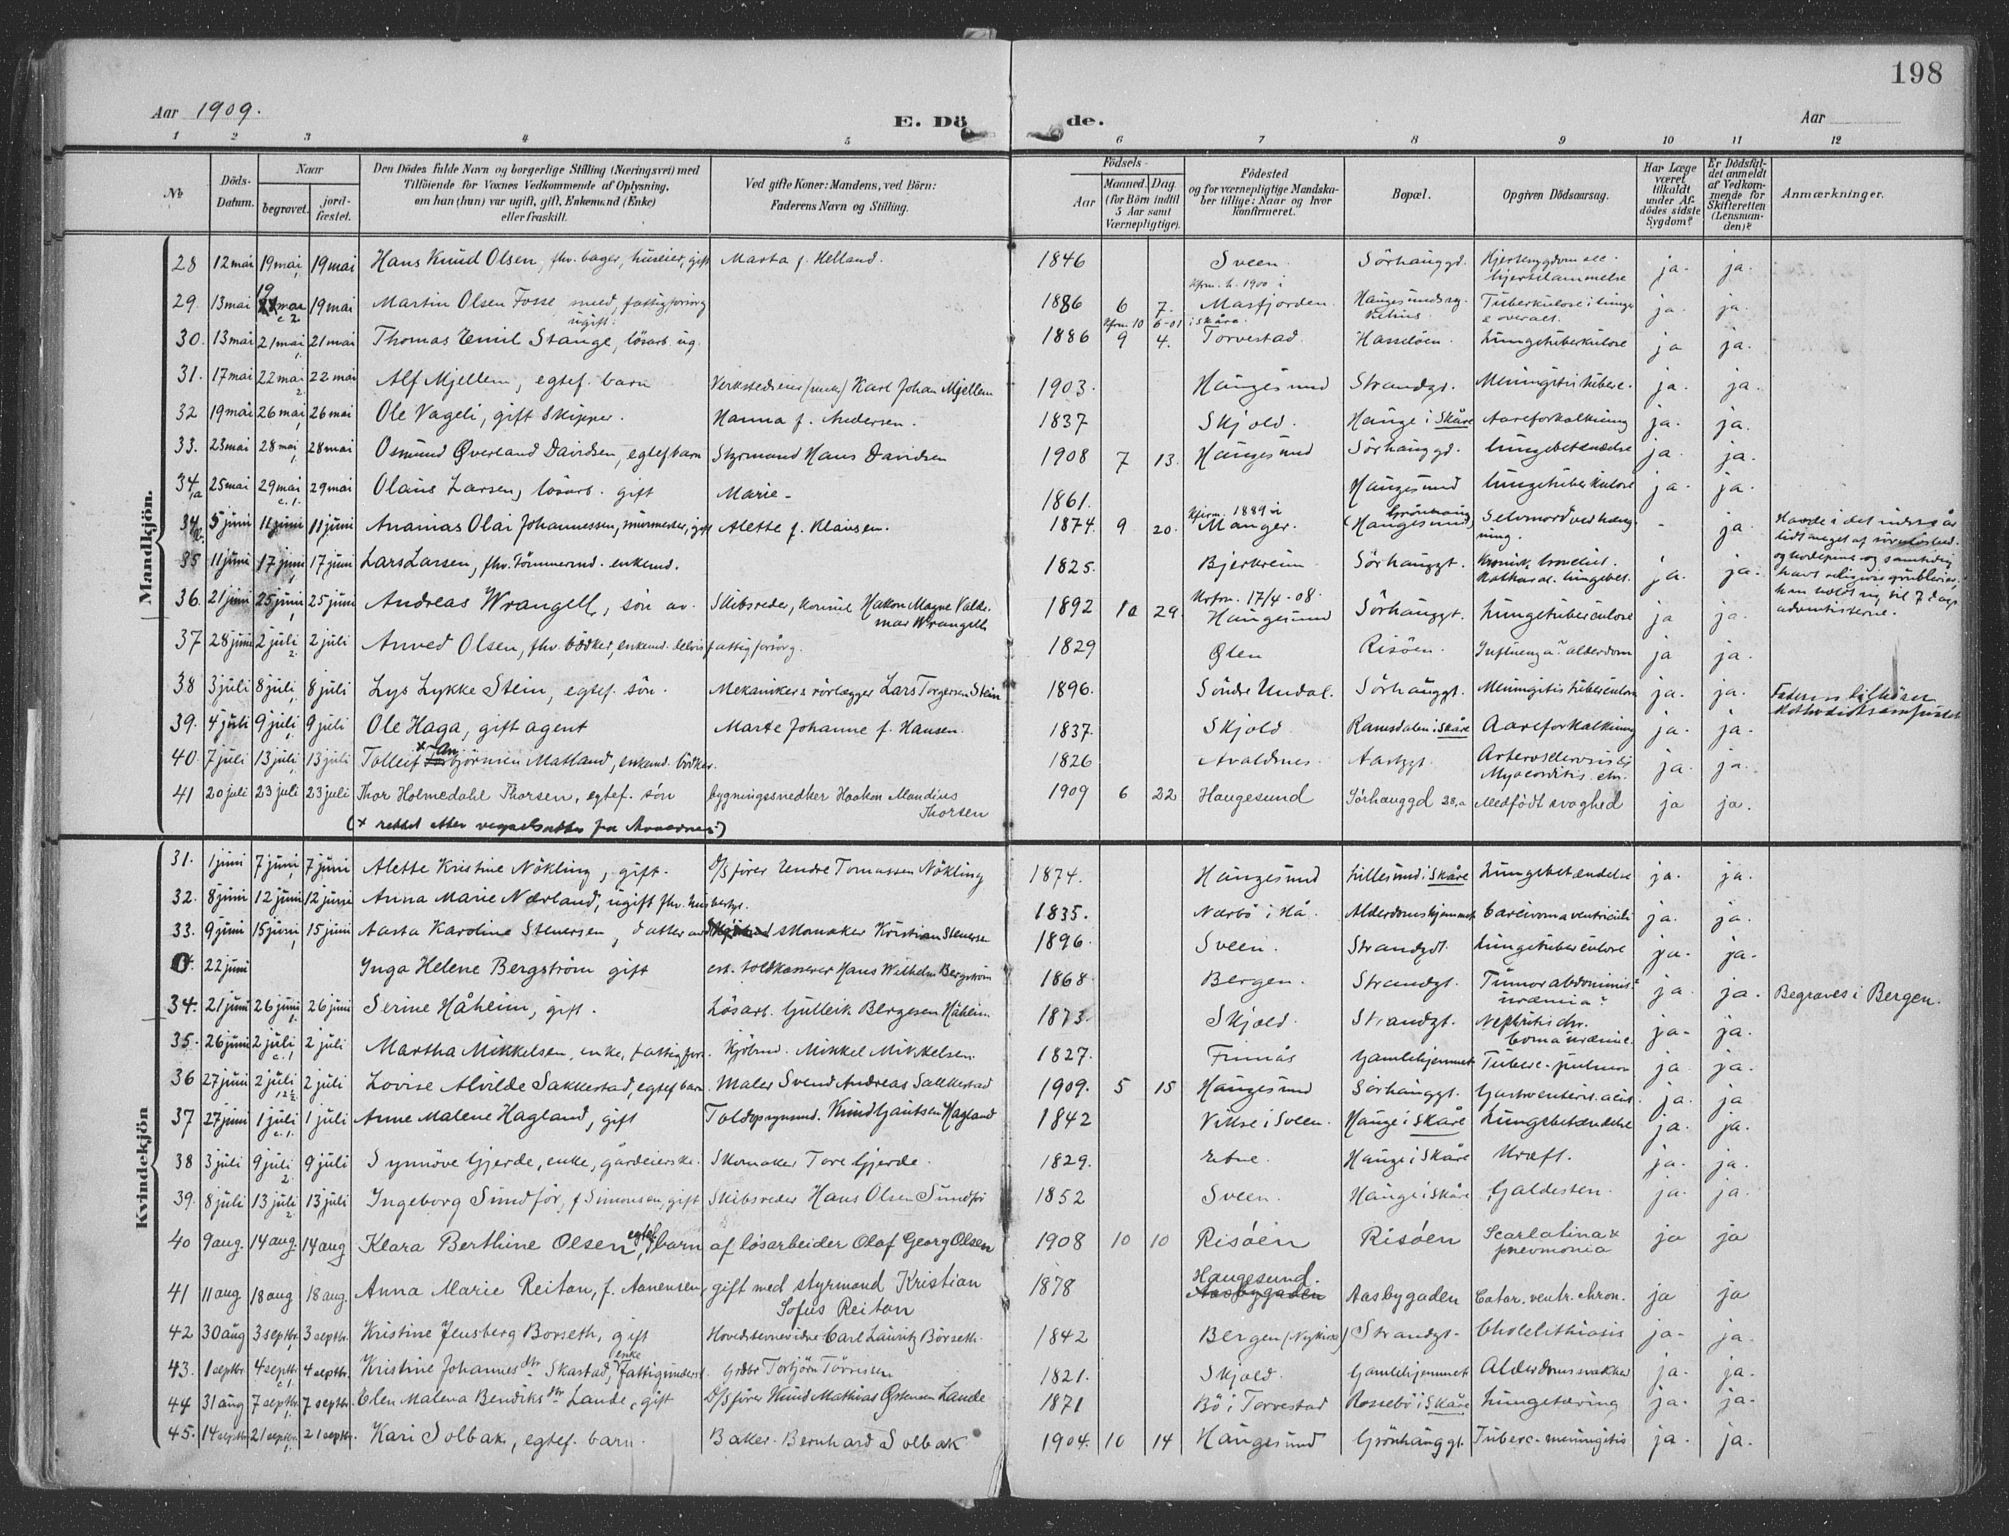 198
Aar 1909.
E. Dö de.
Aar
1 2 3 4 5 6 7 8 9 10 11 12
No
Döds-Datum.
Naar
begravet.
jord-fæstet.
Den Dödes fulde Navn og borgerlige Stilling (Næringsvei) med
Tilföiende for Voxnes Vedkommende af Oplysning,
om han (hun) var ugift, gift, Enkemand (Enke)
eller fraskilt.
Ved gifte Koner: Mandens, ved Börn:
Faderens Navn og Stilling.
Födsels-
Aar
Maaned. Dag.
(for Börn indtil 5 Aar samt Værnepligtige).
Födested
og for værnepligtige Mandska-
ber tillige: Naar og hvor
konfirmeret.
Bopæl.
Opgiven Dödsaarsag.
Har Læge været tilkaldt under Af-dödes sidste Sygdom?
Er Dödsfal-det anmeldt af Vedkom-mende for Skifteretten (Lensman-den)?
Anmærkninger.
Mandkjön.
28 12 mai 19 mai 19 mai Hans Knud Olsen, fhv. bager, huseier, gift Marta f. Helland. 1846 Sveen. Sörhauggd. Hjertesygdom hjertelammelse ja. ja.
29. 13 mai 19 mai 19 mai Martin Olsen Fosse fattigforsörg ugift. 1886 6 7. Masfjorden. Tuberkulose i lunge ja. ja.
30. 13 mai 21 mai 21 mai Thomas Emil Stange, lösarb. ug. 1886 9 4. Torvestad. Hasselöen. Lungetuberkulose ja ja.
31. 17 mai 22 mai 22 mai Alf Mjellem, egtef. barn Verkstedseier Karl Johan Mjellem 1903. Haugesund Strandgt. Meningitis tuberc. ja. ja.
32 19 mai 26 mai 26 mai Ole Vageli, gift Skipper. Hanna f. Andersen. 1837 Skjold. Hauge i Skåre Aareforkalkning ja. ja.
33. 23 mai 28 mai 28 mai Osmund Øverland Davidsen, egtef barn Styrmand Hans Davidsen 1908 7 13. Haugesund Sörhauggd. Lungebetændelse ja. ja.
34a 25 mai 29 mai 29 mai Olaus Larsen, lösarb. gift Marie - 1861. Haugesund Lungetuberkulose ja. ja.
34b. 5 juni 11 juni 11 juni Ananias Olai Johannessen, murmester, gift Alette f. Klausen. 1874. 9 20. Kfirm. 1889 i Manger. (Haugesund) Selvmord ved hængning. - ja.
35 11 juni 17 juni 17 juni Lars Larsen, fhv. Tömmermd. enkemd. 1825. Bjerkreim Sörhauggt. ja. ja.
36. 21 juni 25 juni 25 juni Andreas Wrangell, sön av. Skibsreder, konsul Hakon Magne Valde-mar Wrangell 1892 10 29. Konfrm. 17/4 - 08. Haugesund Sörhauggt. Lungetuberculose ja ja.
37 28 juni 2 juli 2 juli Anved Olsen, fhv. bödker, enkemd. delvis fattigforsörg. 1829 Ølen Risöen. Influenza alderdom ja ja.
38 3 juli 8 juli 8 juli Lys Lykke Stein, egtef. sön. Mekaniker & rörlægger Lars Torgersen Stein 1896. Söndre Undal. Sörhauggt. Meningitis tuberculosa ja. ja.
39. 4 juli 9 juli 9 juli Ole Haga, gift agent Marte Johanne f. Hansen. 1837. Skjold Ramsdalen i Skåre Aareforkalkning ja. ja.
40. 7 juli 13 juli 13 juli Tolleif Matland, enkemd. bödker. 1826 Avaldsnes Aasbygt. ja. ja.
41 20 juli 23 juli 23 juli Thor Holmedahl Thorsen, egtef. sön bygningssnedker Haakon Mandius Thorsen 1909 6 22 Haugesund Sörhauggd 28,a Medfödt svaghed ja ja.
Kvindekjön
31. 1 juni 7 juni 7 juni Alette Kristine Nökling, gift. D/S förer Undre Tomassen Nökling 1874. Haugesund Lillesund i Skåre Lungebetændelse ja. ja.
32. 8 juni 12 juni 12 juni Anna Marie Nærland, ugift fhv. husbestyr. 1835. Nærbö i Hå. Alderdomshjemmet Carcinoma ventriculi ja. ja.
33. 9 juni 15 juni 15 juni Aasta Karoline Stenersen, datter av Skomaker Kristian Stenersen 1896. Sveen. Strandgt. Lungetuberculose ja. ja.
0. 22 juni Inga Helene Bergström gift toldkasserer Hans Wilhelm Bergström 1868. Bergen. Strandgt. Tumor abdominis uræmia ja ja. Begraves i Bergen.
34. 21 juni 26 juni 26 juni Serine Håheim, gift. Lösarb. Gullerik Bergesen Håheim. 1873. Skjold. Strandgt. ja. ja.
35. 26 juni 2 juli 2 juli Martha Mikkelsen, enke, fattigfors. Kjöbmd. Mikkel Mikkelsen. 1827. Finnås Gamlehjemmet Tuberc. pulmon ja. ja.
36 27 juni 2 juli 2 juli Lovise Alvilde Sakkestad, egtef barn. Maler Svend Andreas Sakkestad 1909. 5 15 Haugesund Sörhauggt. ja. ja
37 27 juni 1 juli 1 juli Anne Malene Hagland, gift Toldopsynsmd. Knud Gautsen Hagland 1842 Vikse i Sveen. Hauge i Skåre Lungebetændelse ja. ja.
38 3 juli 9 juli 9 juli Synnöve Gjerde, enke, gårdeierske. Skomaker Tore Gjerde. 1829. Etne. Hauge i Skåre Kræft. ja. ja.
39. 8 juli 13 juli 13 juli Ingeborg Sundför, f Simonsen, gift Skibsreder Hans Olsen Sundför 1852 Sveen. Hauge i Skåre Galdesten. ja. ja.
40 9 aug. 14 aug. 14 aug Klara Berthine Olsen, egtef. barn af lösarbeider Olaf Georg Olsen 1908 10 10 Risöen Risöen Scarlatina & pnevmonia ja ja
41 11 aug 18 aug 18 aug. Anna Marie Reitan, f. Aanensen, gift med styrmand Kristian Sofus Reitan 1878 Haugesund. Aasbygaden Aasbygaden Catar. ventr. chron. ja ja
42 30 aug 3 septbr. 3 septbr. Kristine Jensberg Börseth, gift Carl Lauritz Börseth. 1842 Bergen (Nykirke) Strandgt. Cholelithiasis ja. ja.
43. 1 septbr 4 septbr 4 septbr Kristine Johannesdtr. Skastad, enke Fattigunderst. Grdbr Torbjörn Törrisen 1821. Skjold. Gamlehjemmet Alderdomssvækkelse ja. ja.
44 31 aug 7 septbr. 7 septbr. Elen Malena Bendiksdtr. Lande, gift D/S förer Knud Mathias Østensen Lande 1871 Bö i Torvestad Rossebö i Skåre Lungetæring ja. ja.
45. 14 septbr 21 septbr. 21 septbr. Kari Solbak, egtef. barn. Baker Bernhard Solbak 1904. 10 14 Haugesund Grönhauggt. Tuberc. meningitis ja. ja.